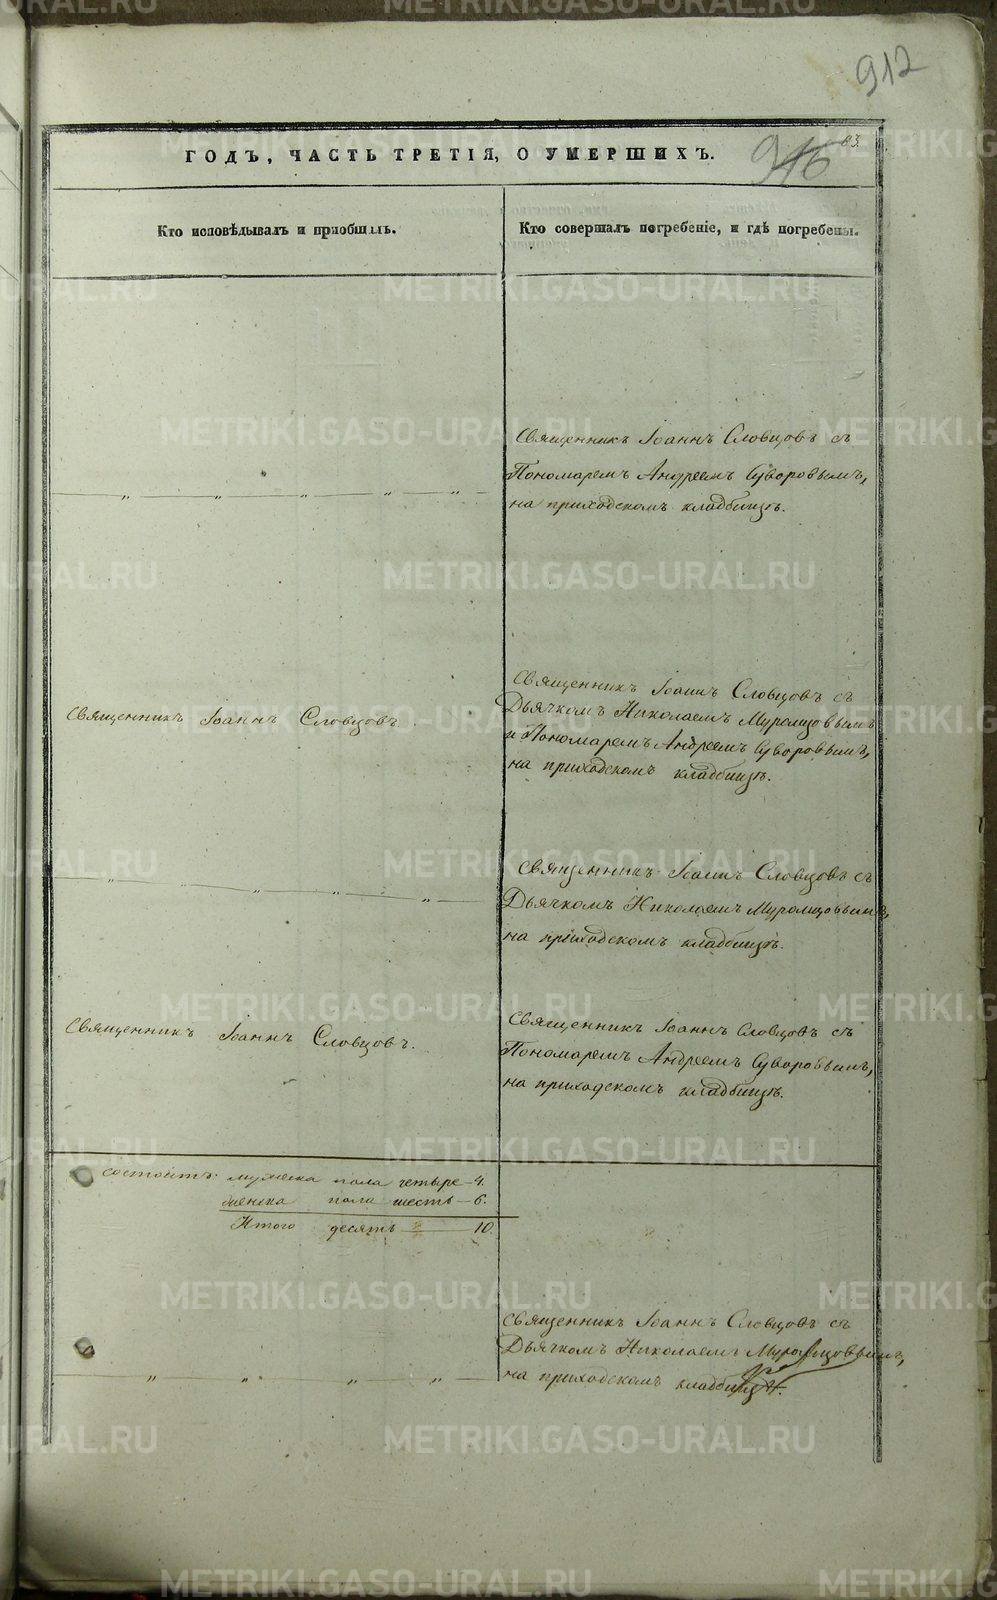 912
916
83.
ГОДЪ, ЧАСТЬ ТРЕТІЯ, О УМЕРШИХЪ.
Кто исповѣдывалъ и пріобщалъ.
Кто совершалъ погребеніе, и гдѣ погребены.
Священникъ Іоаннъ Словцовъ съ
Пономаремъ Андреемъ Суворовымъ,
на приходскомъ кладбищѣ.
Священникъ Іоаннъ Словцовъ.
Священникъ Іоаннъ Словцовъ съ
Дьячкомъ Николаемъ Муромцовымъ
и Пономаремъ Андреемъ Суворовымъ,
на приходскомъ кладбищѣ.
Священникъ Іоаннъ Словцовъ съ
Дьячкомъ Николаемъ Муромцовымъ,
на приходскомъ кладбищѣ.
Священникъ Іоаннъ Словцовъ.
Священникъ Іоаннъ Словцовъ съ
Пономаремъ Андреемъ Суворовымъ,
на приходскомъ кладбищѣ.
состоитъ: мужеска пола четыре – 4.
женска пола шесть – 6.
Итого десять 10.
Священникъ Іоаннъ Словцовъ съ
Дьячкомъ Николаемъ Муромцовымъ,
на приходскомъ кладбищѣ.
METRIKI.GASO-URAL.RU